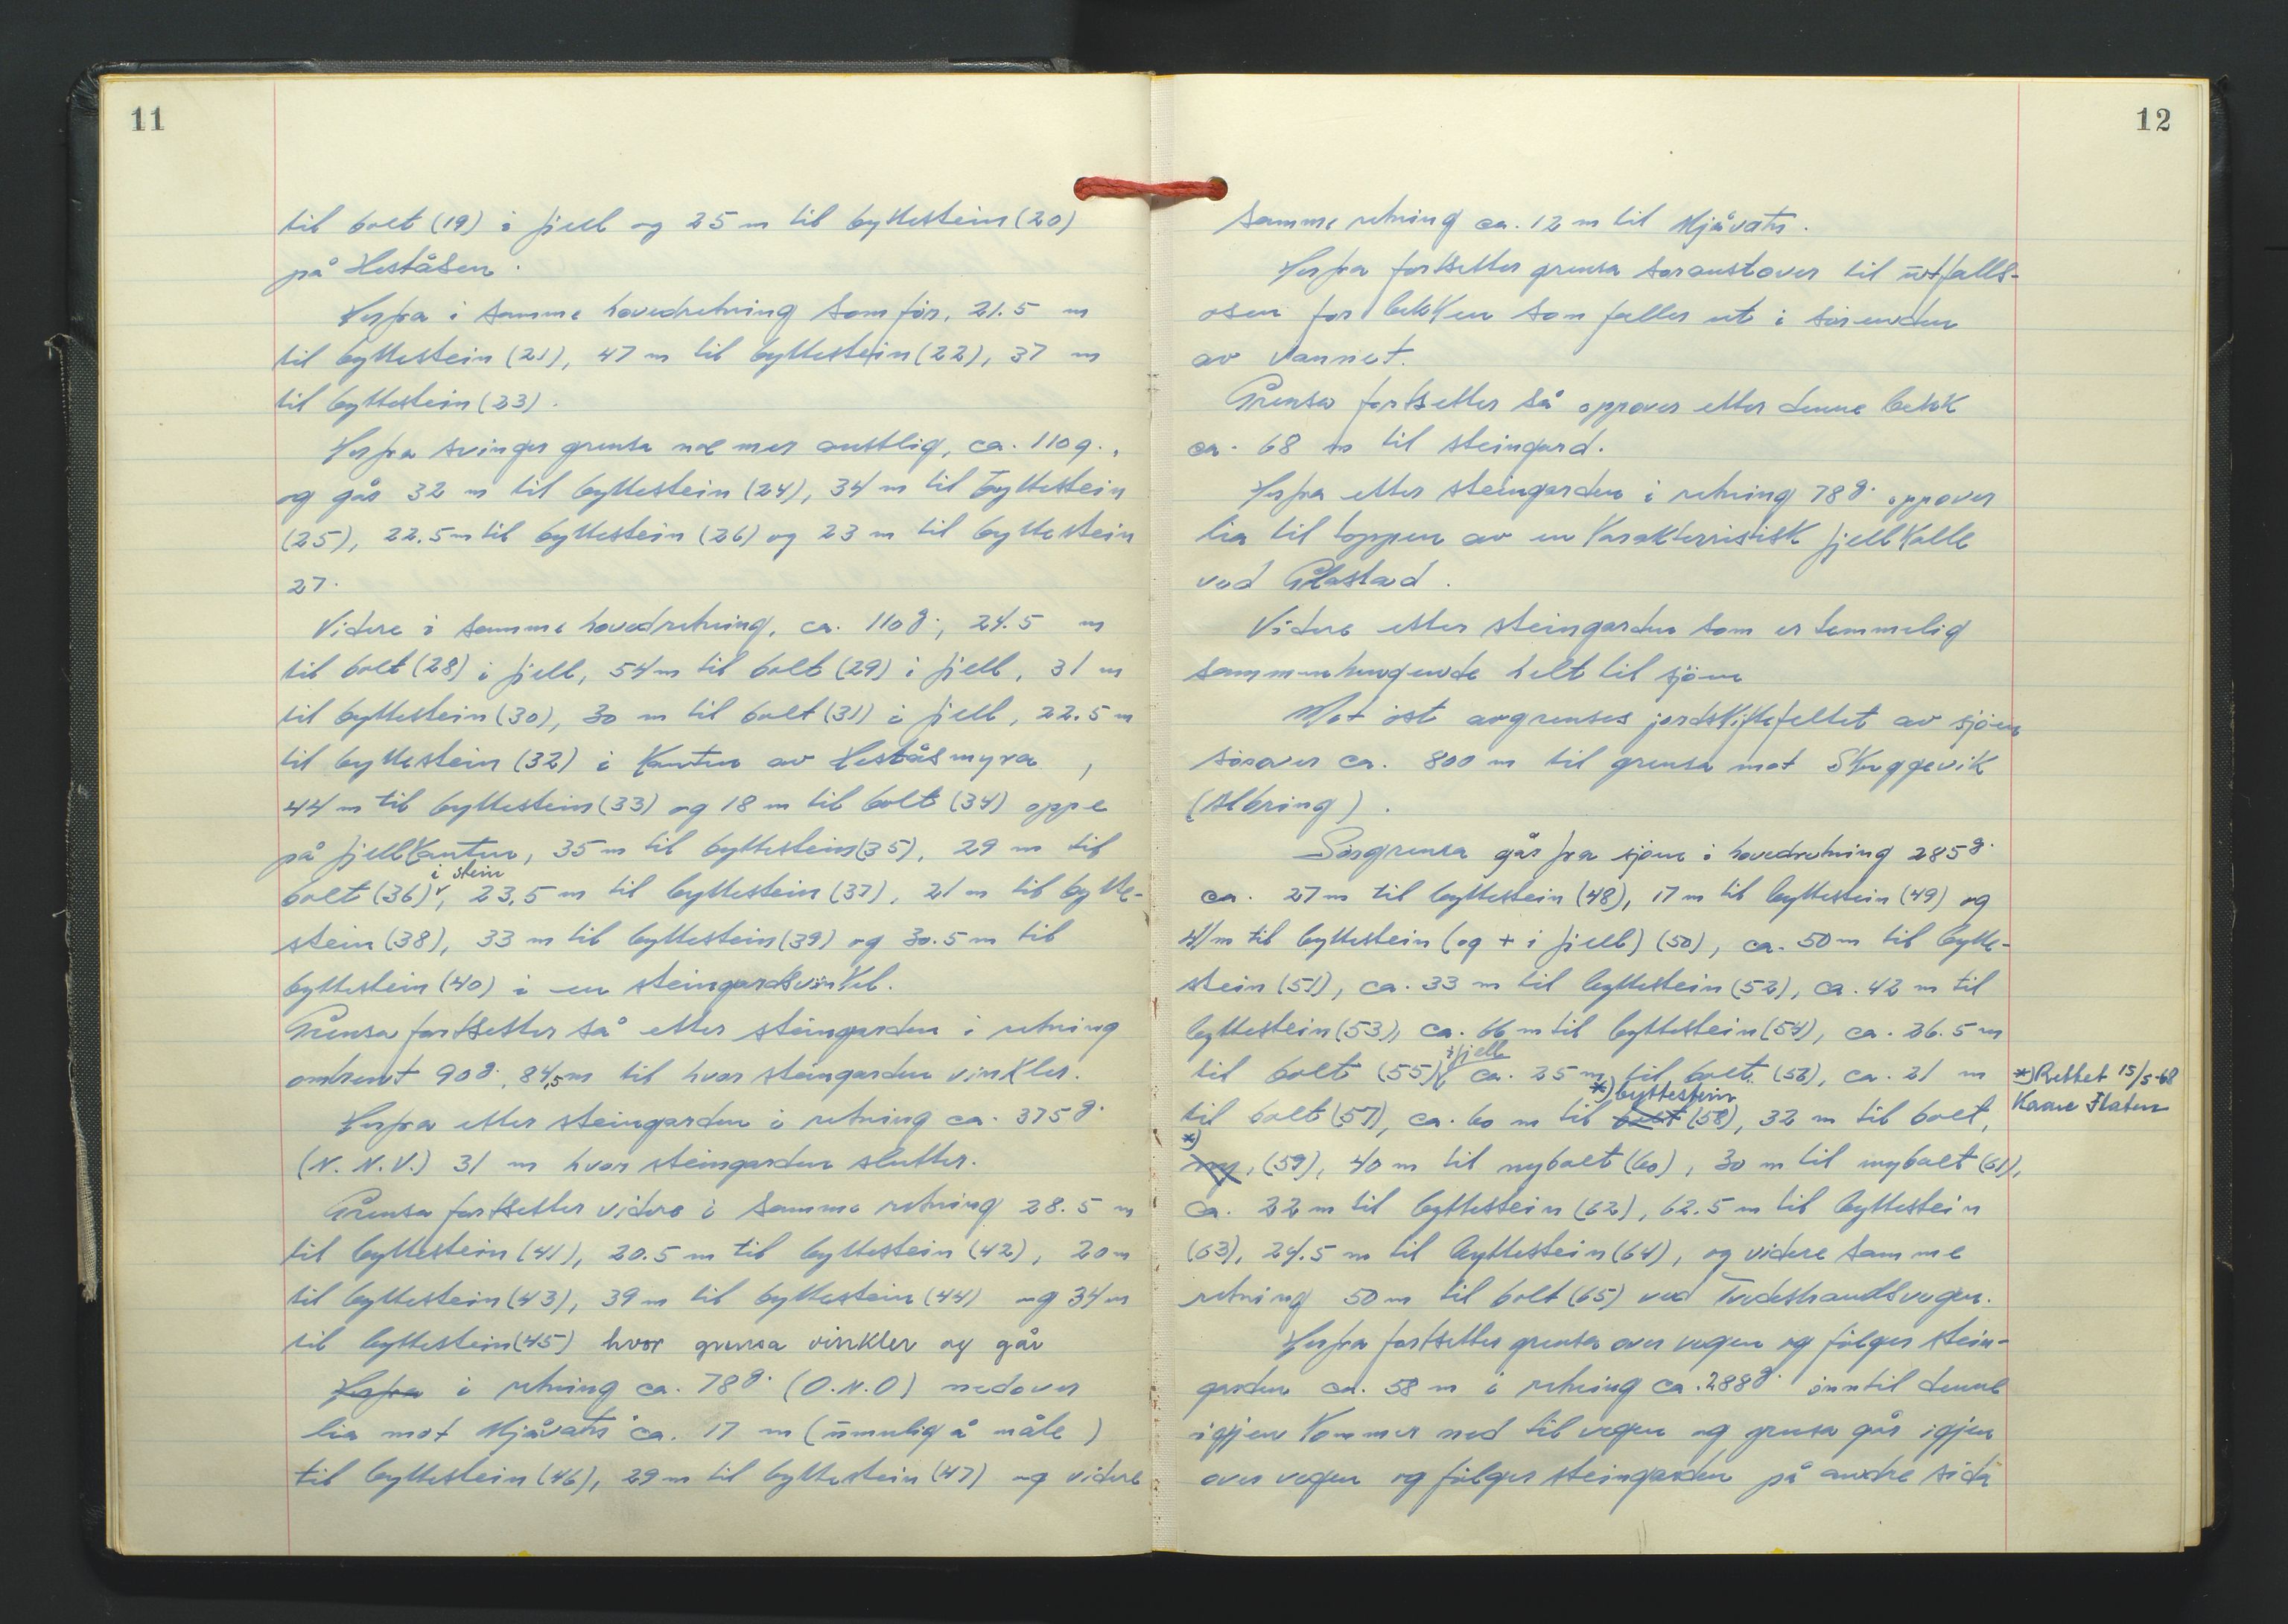 11
til bolt (19) i fjell og 25 m til byttestein (20)
på Heståsen.
Herfra i samme hovedretning som før, 21.5 m
til byttestein (21), 47 m til byttestein (22), 37 m
til byttestein (23).
Herfra svinger grensa noe mer austlig, ca. 110 g.,
og går 32 m til byttestein (24), 34 m til byttestein
(25), 22.5 m til byttestein (26) og 23 m til byttestein
27.
Videre i samme hovedretning, ca. 110 g., 24.5 m
til bolt (28) i fjell, 54 m til bolt (29) i fjell, 31 m
til byttestein (30), 30 m til bolt (31) i fjell, 22.5 m
til byttestein (32) i kanten av Heståsmyra,
44 m til byttestein (33) og 18 m til bolt (34) oppe
på fjellkanten, 35 m til byttestein (35), 29 m til
i stein
bolt (36), 23,5 m til byttestein (37), 21 m til bytte-
stein (38), 33 m til byttestein (39) og 30.5 m til
byttestein (40) i en steingardsvinkel.
Grensa fortsetter så etter steingarden i retning
omtrent 90 g., 84,5 m til hvor steingarden vinkler.
Herfra etter steingarden i retning ca. 375 g.
(N. N. V.) 31 m hvor steingarden slutter.
Grensa fortsetter videre i samme retning 28.5 m
til byttestein (41), 20.5 m til byttestein (42), 20 m
til byttestein (43), 39 m til byttestein (44) og 34 m
til byttestein (45) hvor grensa vinkler og går
Herfra i retning ca. 78 g. (O.N.O) nedover
lia mot Mjåvatn ca. 17 m (umulig å måle)
til byttestein (46), 29 m til byttestein (47) og videre
12
samme retning ca. 12 m til Mjåvatn.
Herfra fortsetter grensa søraustover til utfalls-
osen for bekken som faller ut i sørenden
av vannet.
Grensa fortsetter så oppover etter denne bekk
ca. 68 m til steingard.
Herfra etter steingarden i retning 78 g. oppover
lia til toppen av en karakteristisk fjellkolle
ved Glastad.
Videre etter steingarden som er temmelig
sammenhengende helt til sjøen
Mot øst avgrenses jordskiftefeltet av sjøen
sørover ca. 800 m til grensa mot Skuggevik
(Albring).
Sørgrensa går fra sjøen i hovedretning 285 g.
ca. 27 m til byttestein (48), 17 m til byttestein (49) og
41 m til byttestein (og + i fjell) (50), ca. 50 m til bytte-
stein (51), ca. 33 m til byttestein (52), ca. 42 m til
byttestein (53), ca. 66 m til byttestein (54), ca. 26.5 m
i fjell
til bolt (55), ca. 25 m til bolt (56), ca. 21 m
*) byttestein
til bolt (57), ca. 60 m til bolt (58), 32 m til bolt,
*)
ny, (59), 40 m til nybolt (60), 30 m til nybolt (61),
ca. 22 m til byttestein (62), 62.5 m til byttestein
(63), 24.5 m til byttestein (64), og videre samme
retning 50 m til bolt (65) ved Tvedestrandsvegen.
Herfra fortsetter grensa over vegen og følger stein-
garden ca. 58 m i retning ca. 288 g. inntil denne
igjen kommer ned til vegen og grensa går igjen
over vegen og følger steingarden på andre sida
*) Rettet 15/5-68
Kaare Flaten